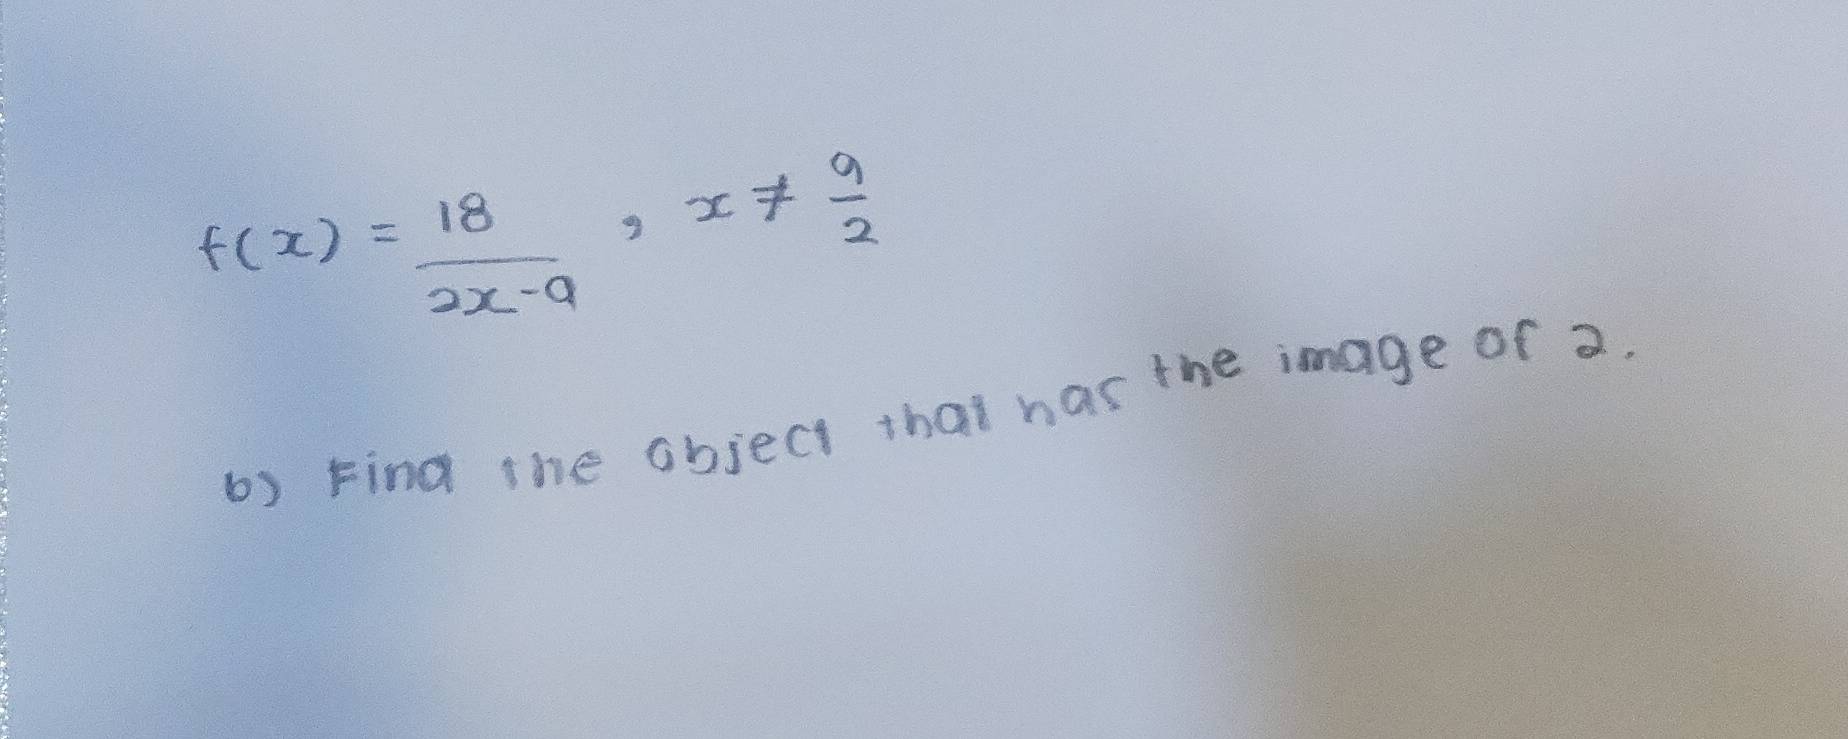 f(x) = 18/(2x-9) , x ≠ 9/2
b) Find the object that has the image of 2.